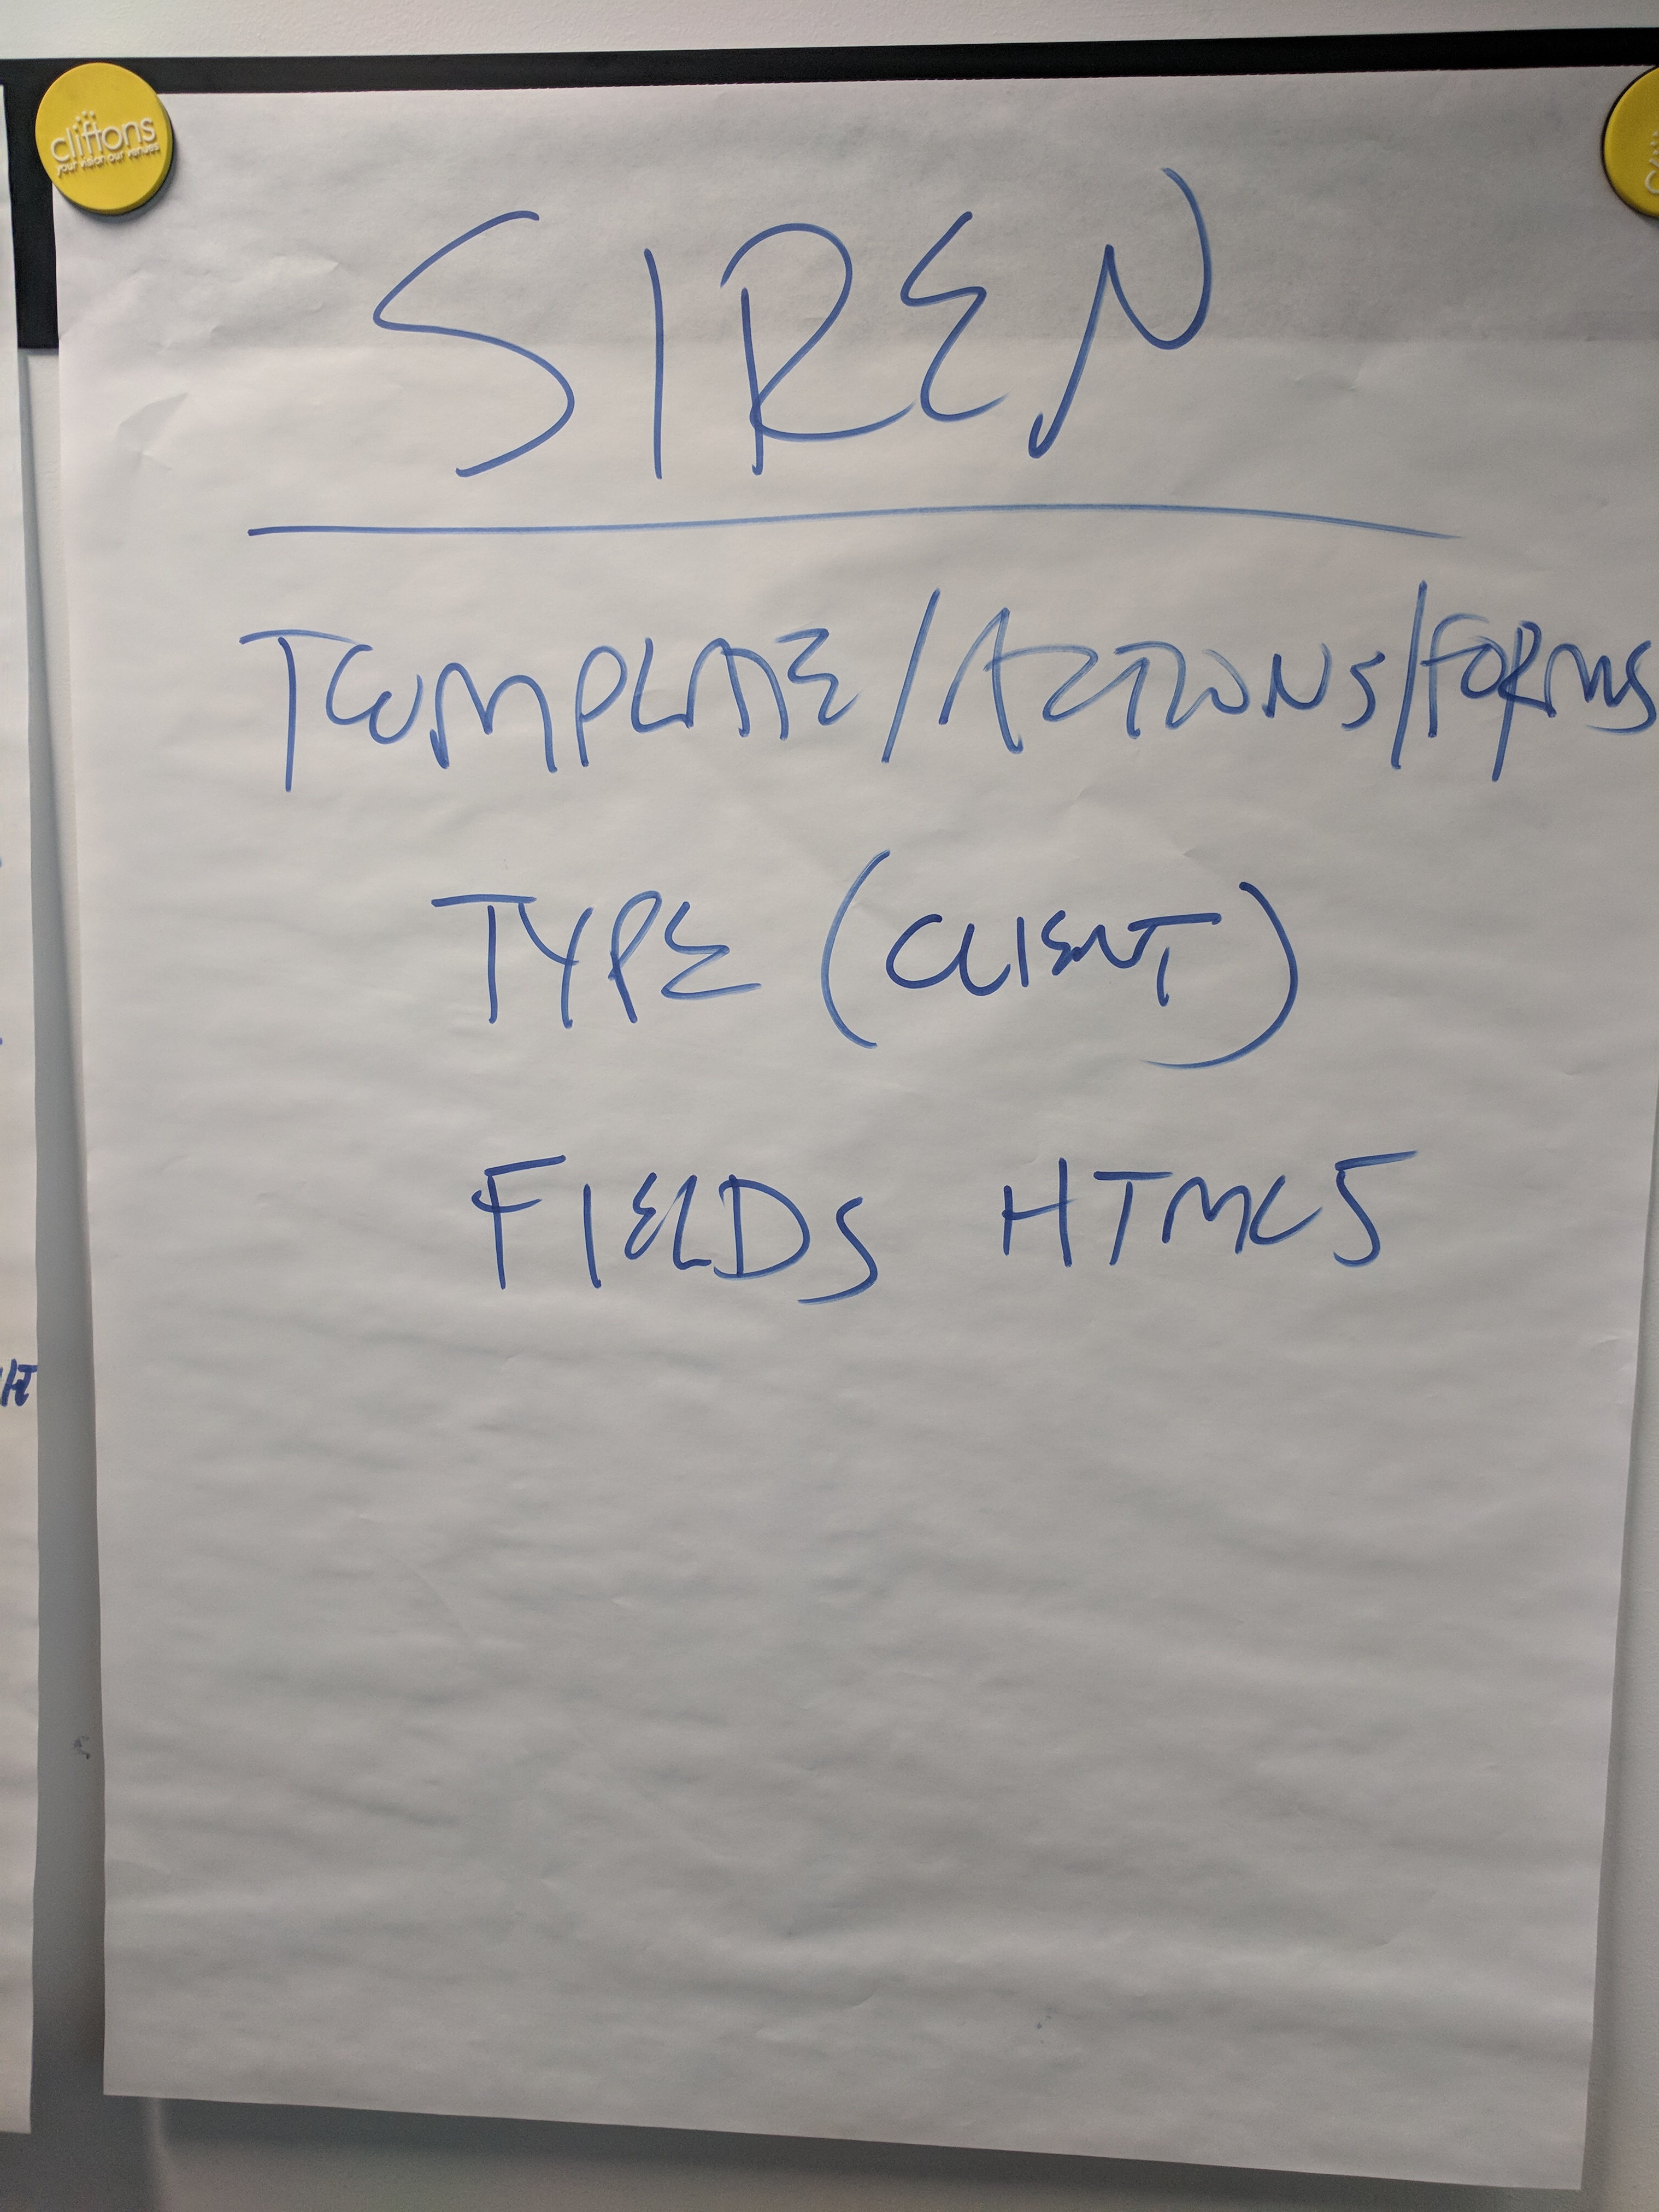 cliftons
your vision our venues
SIREN
TEMPLATE/ACTIONS/FORMS
TYPE (CLIENT)
FIELDS HTML5